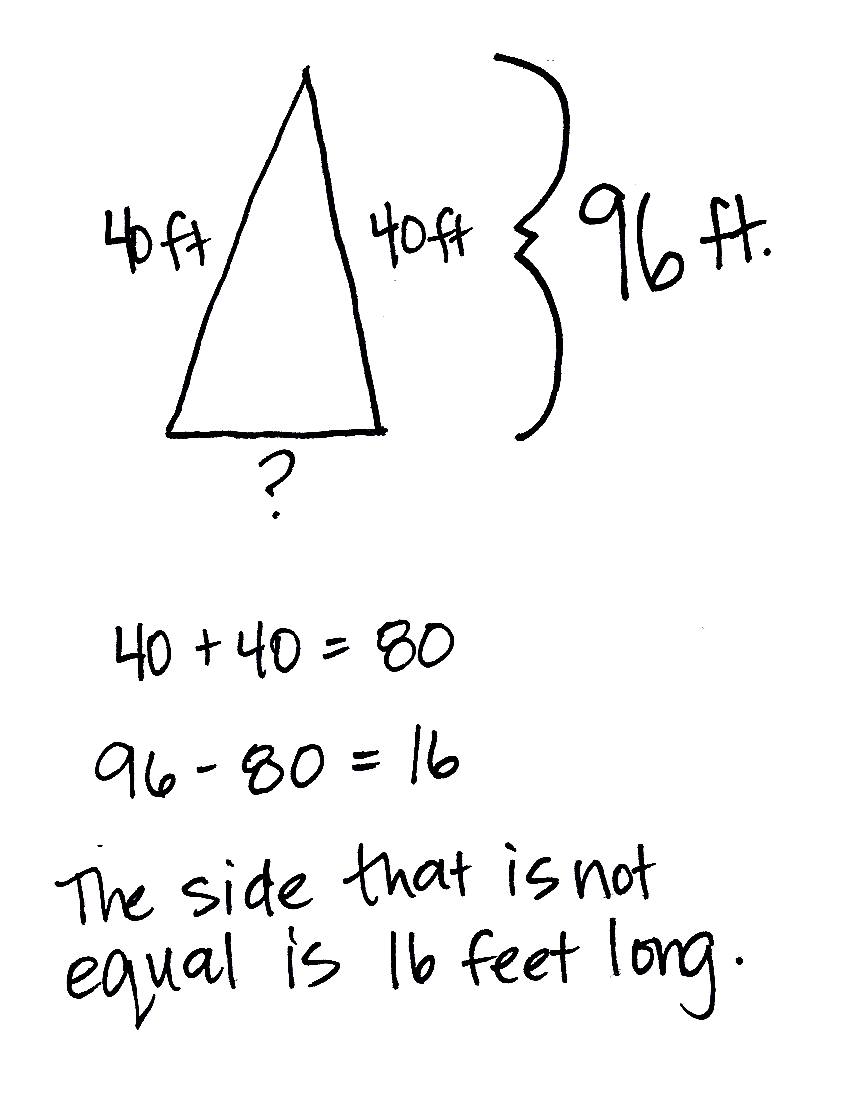 40 ft 40 ft 96 ft.
?
40 + 40 = 80
96 - 80 = 16
The side that is not
equal is 16 feet long.